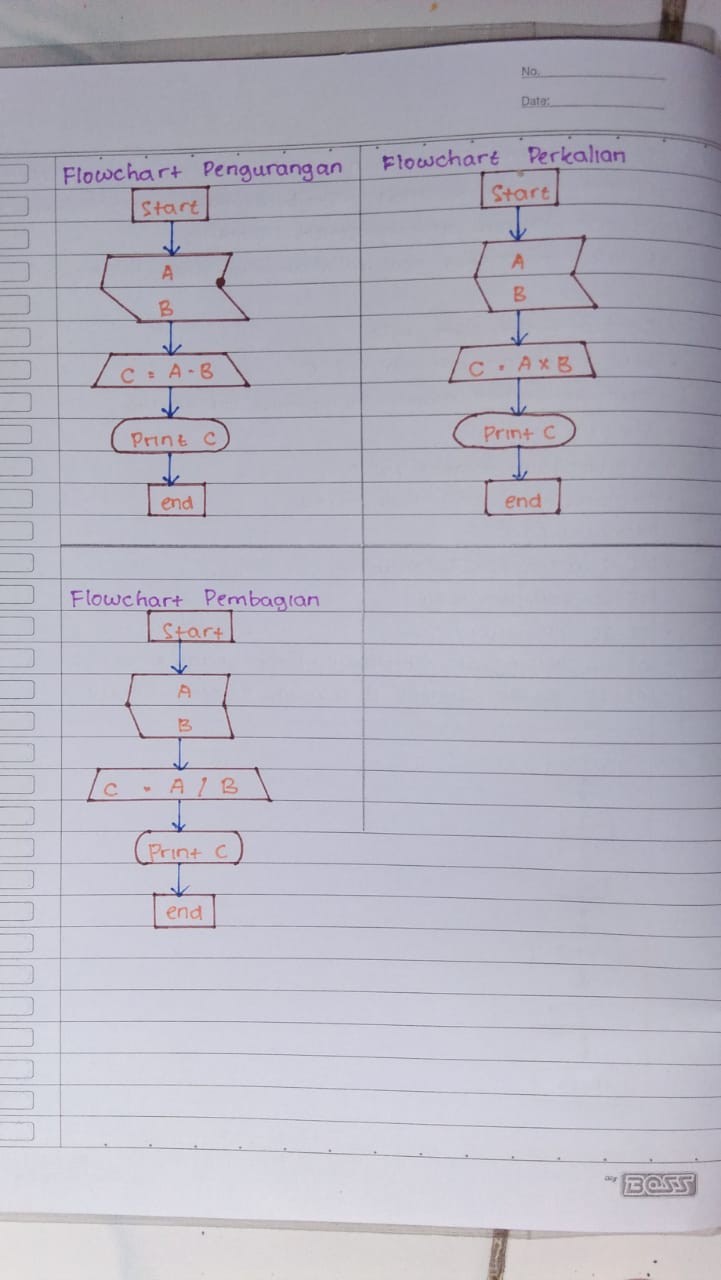 No.
Date:
Flowchart Pengurangan
Start
A
B
C = A - B
Print C
end
Flowchart Perkalian
Start
A
B
C = A x B
Print C
end
Flowchart Pembagian
Start
A
B
C = A / B
Print C
end
BOSS